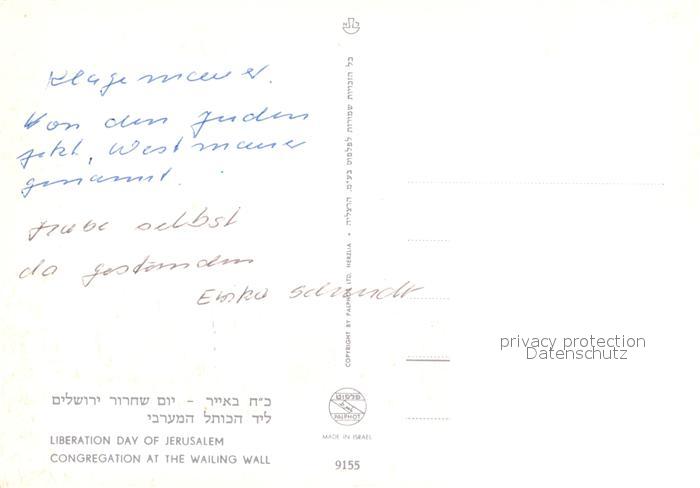 Klagemauer.
Von den Juden
jetzt, Westmauer
genannt.
Habe selbst
da gestanden
Schmidt
כ"ח באייר - יום שחרור ירושלים
ליד הכותל המערבי
LIBERATION DAY OF JERUSALEM
CONGREGATION AT THE WAILING WALL
כל הזכויות שמורות לפלפוט בע"מ. הרצליה
COPYRIGHT BY PALPHOT LTD. HERZLIA
פלפוט
PALPHOT
MADE IN ISRAEL
9155
privacy protection
Datenschutz